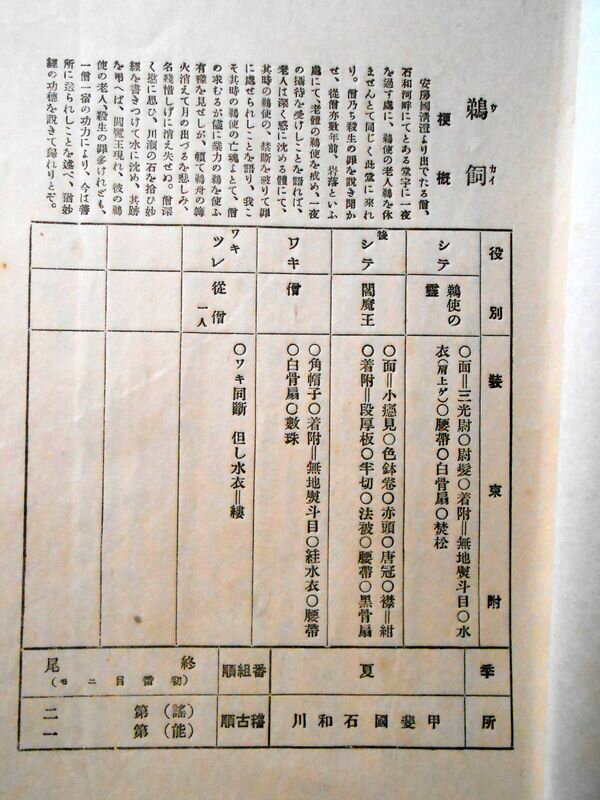 鵜飼
ウカイ
梗概
安房國淸澄より出でたる僧、
石和河畔にてとある堂宇に一夜
を過す處に、鵜使の老人鵜を休
ませんとて同じく此堂に來れ
り。僧乃ち殺生の罪を說き聞か
せ、從僧亦數年前、岩落といふ
處にて、老體の鵜使を戒め、一夜
の攝待を受けしことを語れば、
老人は深く感に沈める體にて、
其時の鵜使の、禁斷を破りて罪
に處せられしことを語り、我こ
そ其時の鵜使の亡魂よとて、僧
の求むるが儘に業力の鵜を使ふ
有樣を見せしが、頓て鵜舟の篝
火消えて月の出づるを悲しみ、
名殘惜しげに消え失せぬ。僧深
く愍に思ひ、川瀨の石を拾ひ妙
經を書きつけて水に沈め、其跡
を弔へば、閻魔王現れ、彼の鵜
使の老人、殺生の罪多けれども、
一僧一宿の功力により、今は善
所に送られしことを述べ、猶妙
經の功德を說きて歸れりとぞ。
役別
裝束附
シテ
鵜使の靈
○面＝三光尉○尉髮○着附＝無地熨斗目○水
衣(肩上ゲ)○腰帶○白骨扇○焚松
後シテ
閻魔王
○面＝小癋見○色鉢卷○赤頭○唐冠○襟＝紺
○着附＝段厚板○半切○法被○腰帶○黑骨扇
ワキ
僧
○角帽子○着附＝無地熨斗目○絓水衣○腰帶
○白骨扇○數珠
ワキツレ
從僧
一人
○ワキ同斷 但し水衣＝縷
季
夏
番組順
終尾
(初番目ニモ)
所
甲斐國石和川
稽古順
(謠)第二
(能)第一